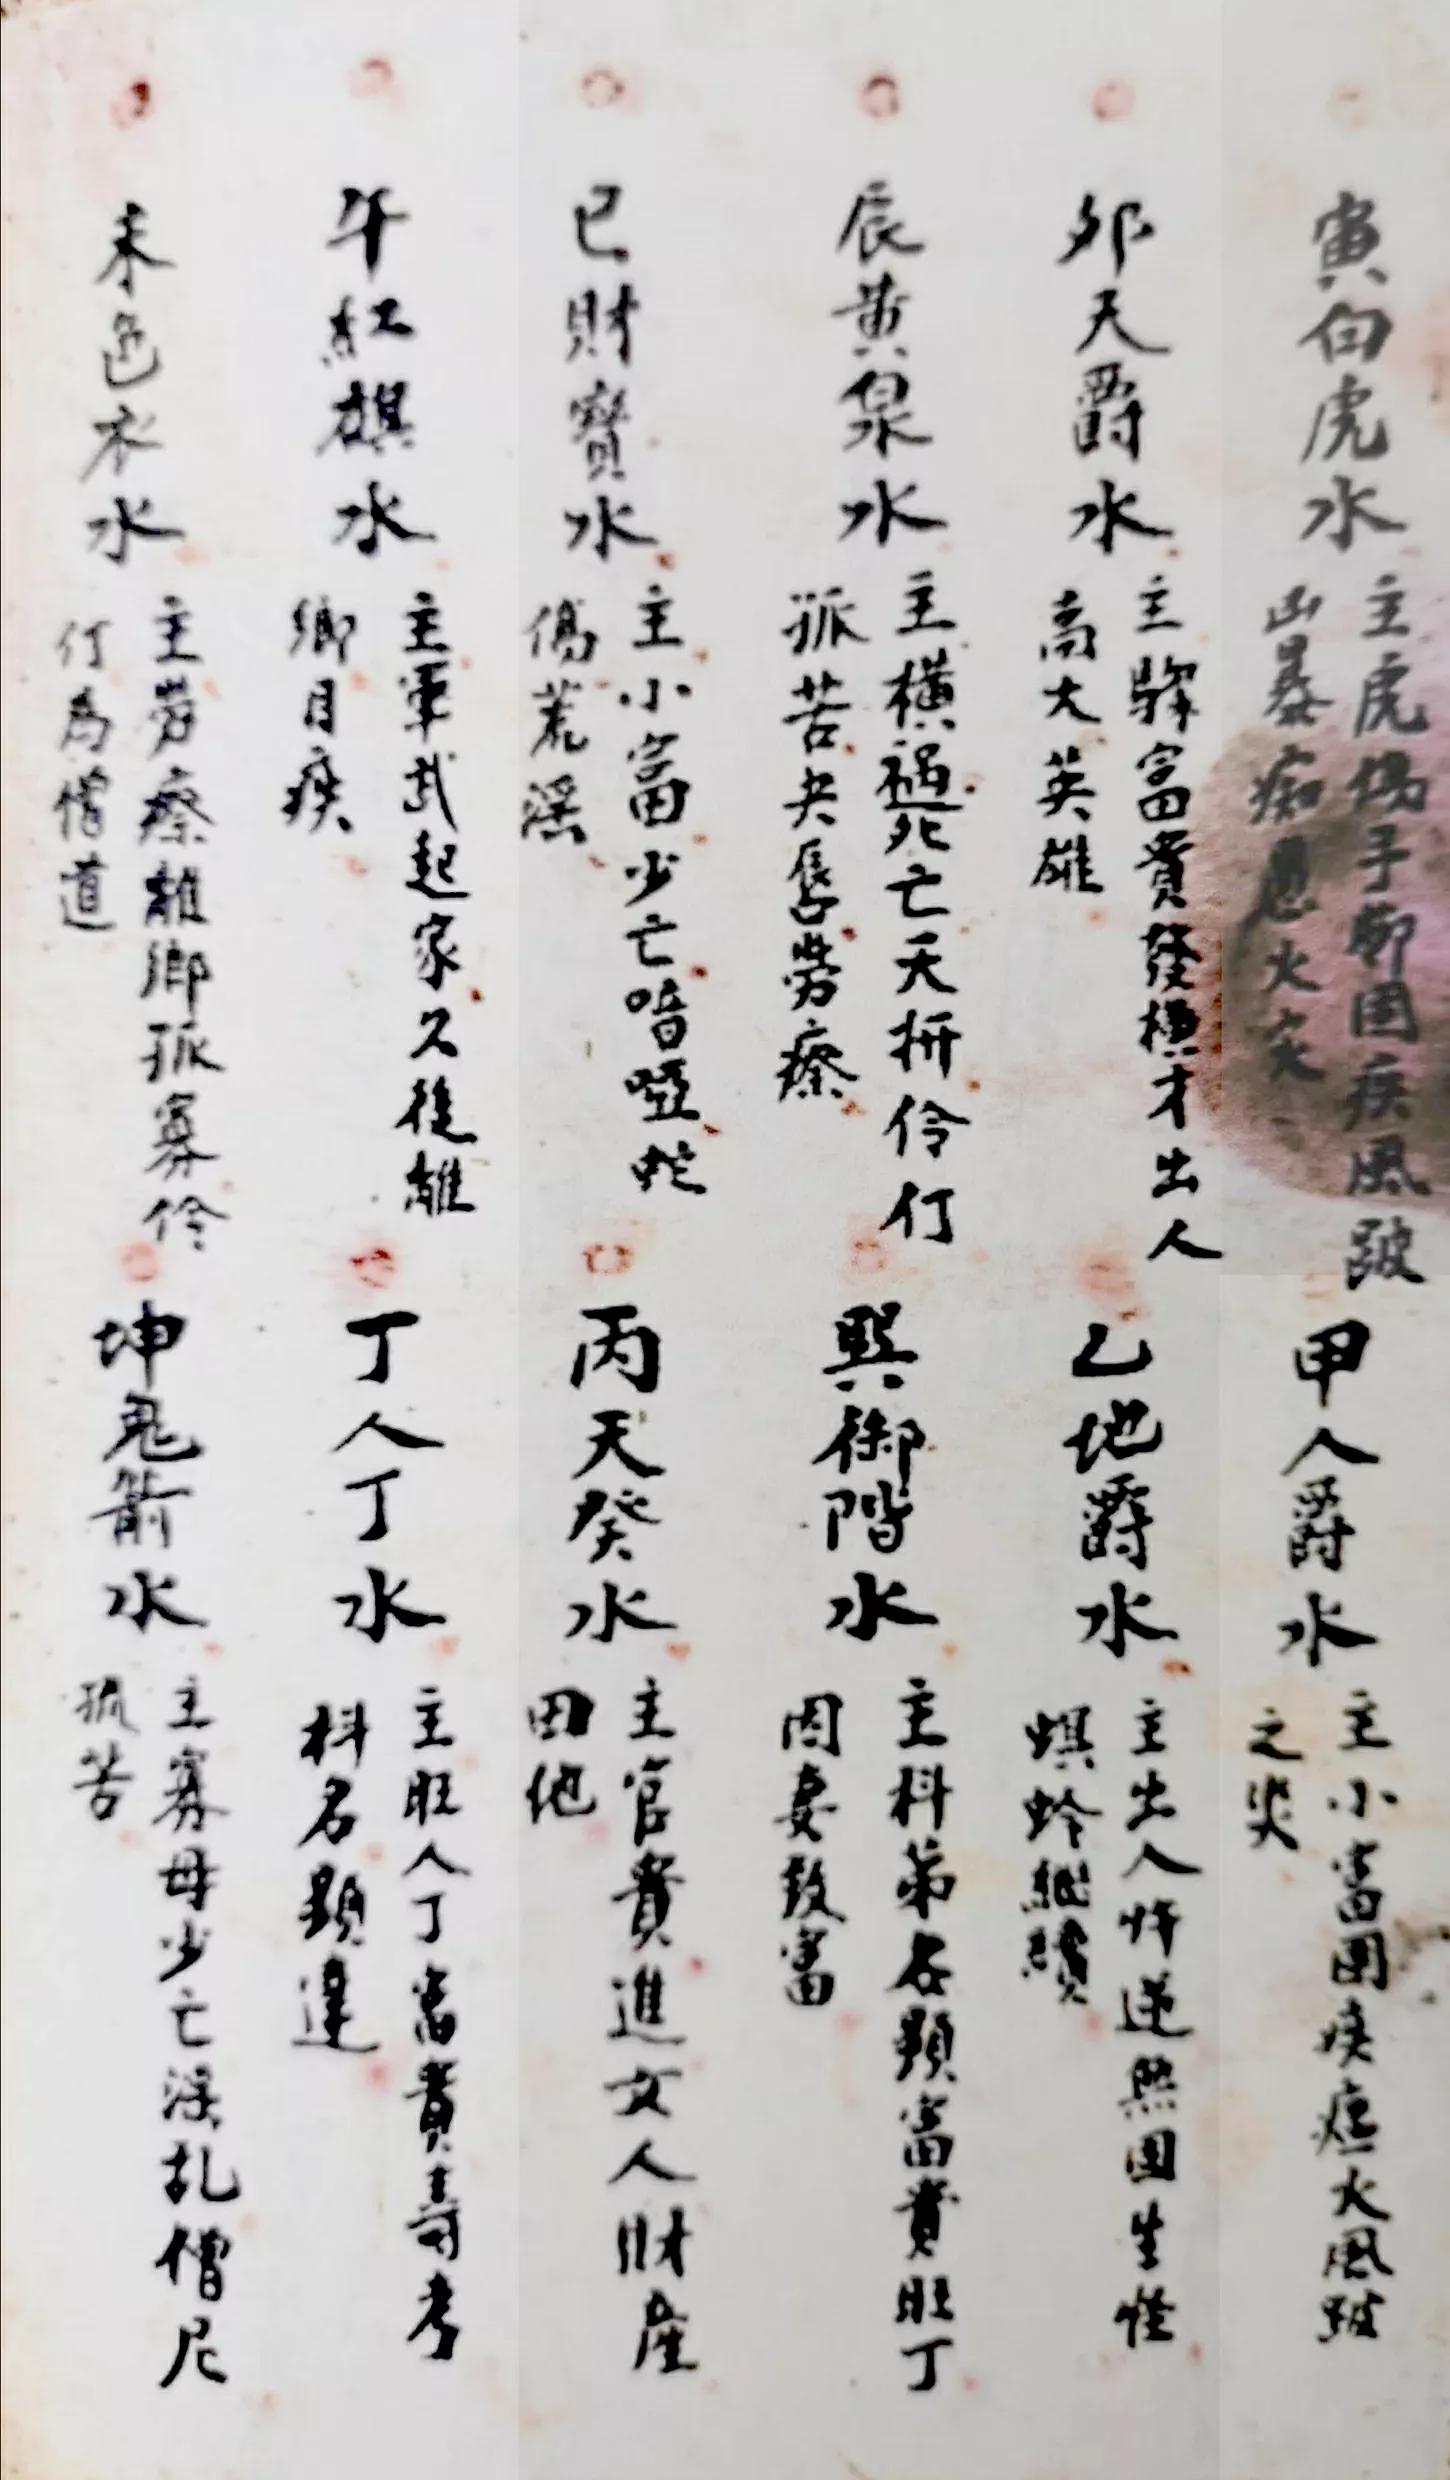 寅白虎水
主虎傷手腳固疾風跛
凶暴痴愚火灾
甲人爵水
主小富固疾瘟火風跛
之災
卯天爵水
主驟富貴發橫才出人
高大英雄
乙地爵水
主出人忤逆無固生怪
螟蛉繼續
辰黃泉水
主橫禍死亡夭折伶仃
孤苦夫辱勞瘵
巽御階水
主科第名顯富貴旺丁
因妻致富
巳財寶水
主小富少亡喑啞蛇
傷荒淫
丙天癸水
主官貴進女人財產
田地
午紅旗水
主軍武起家久後離
鄉目疾
丁人丁水
主旺人丁富貴壽考
科名顯達
未色衣水
主勞瘵離鄉孤寡伶
仃為僧道
坤鬼箭水
主寡母少亡淫乱僧尼
孤苦